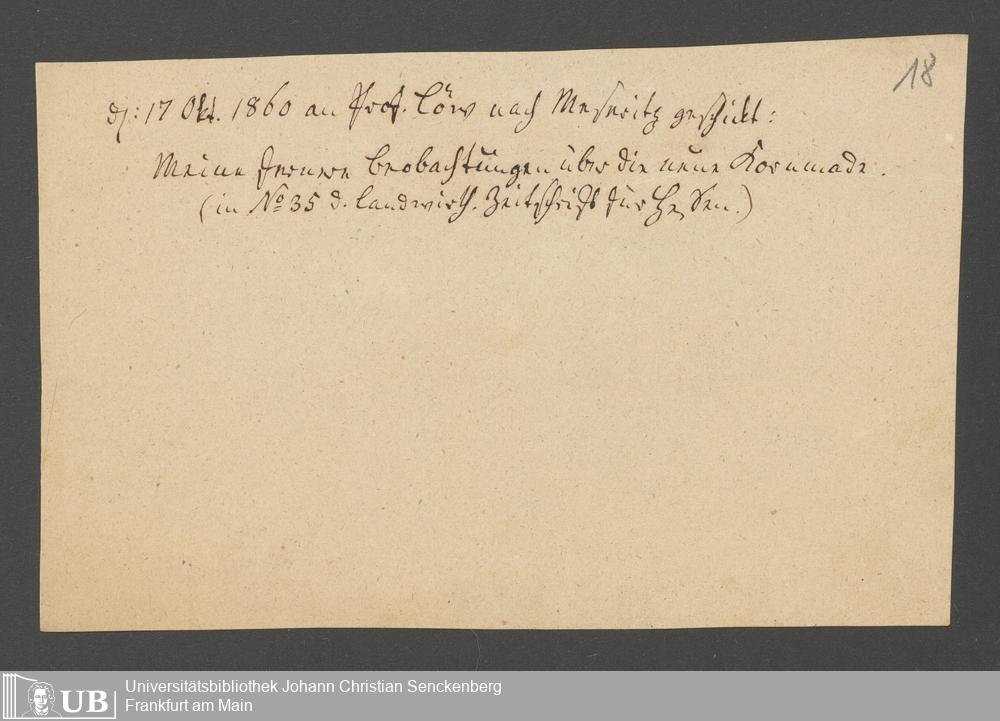 18
d: 17 Okt. 1860 an Prof. Löw nach Meseritz geschickt:
Meine fernere Beobachtungen über die neue Kornmade.
(in No 35 d. landwirth. Zeitschrift für Hessen.)
UB
Universitätsbibliothek Johann Christian Senckenberg
Frankfurt am Main